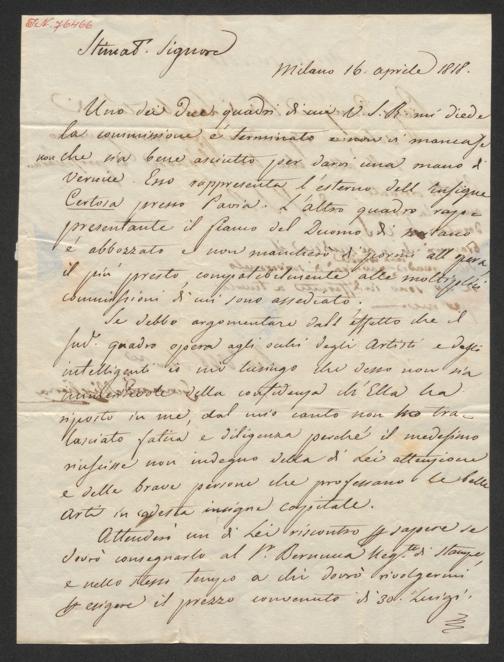 E.N. 76466
Stimat. Signore
Milano 16. aprile 1818.
Uno dei due quadri di cui V. S. R. mi diede
la commissione è terminato e non vi manca se
non che sia bene asciutto per darsi una mano di
Vernice Esso rappresenta l'esterno dell'insigne
Certosa presso Pavia. L'altro quadro rap-
presentante il fianco del Duomo di Milano
è abbozzato e non mancherò di pormi all'opera
il più presto compatibilmente alle moltiplici
commissioni di cui sono assediato.
Se debbo argomentare dall'effetto che il
quadro opera agli occhi degli Artisti e degli
intelligenti io mi lusingo che desso non sia
della confidenza ch'Ella ha
riposto in me, dal mio canto non ho tra-
lasciato fatica e diligenza perchè il medesimo
riuscisse non indegno della di Lei attenzione
e delle brave persone che professano le belle
Arti in codesta insigne capitale.
Attenderò un di Lei riscontro per sapere se
dovrò consegnarlo al Sr. Negte. di Stampe,
e nello stesso tempo a chi dovrò rivolgermi
per esigere il prezzo convenuto di 30. Luigi.